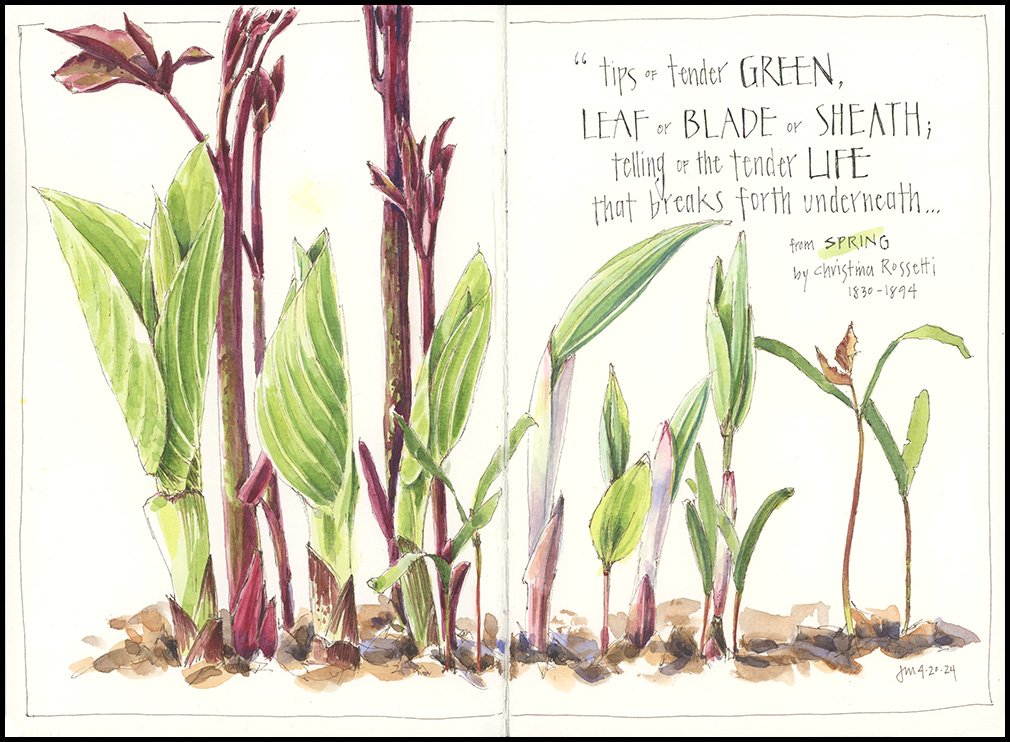 “ tips OF tender GREEN,
LEAF or BLADE or SHEATH;
telling OF the tender LIFE
that breaks forth underneath...
from SPRING
by Christina Rossetti
1830-1894
JM 4·20·24